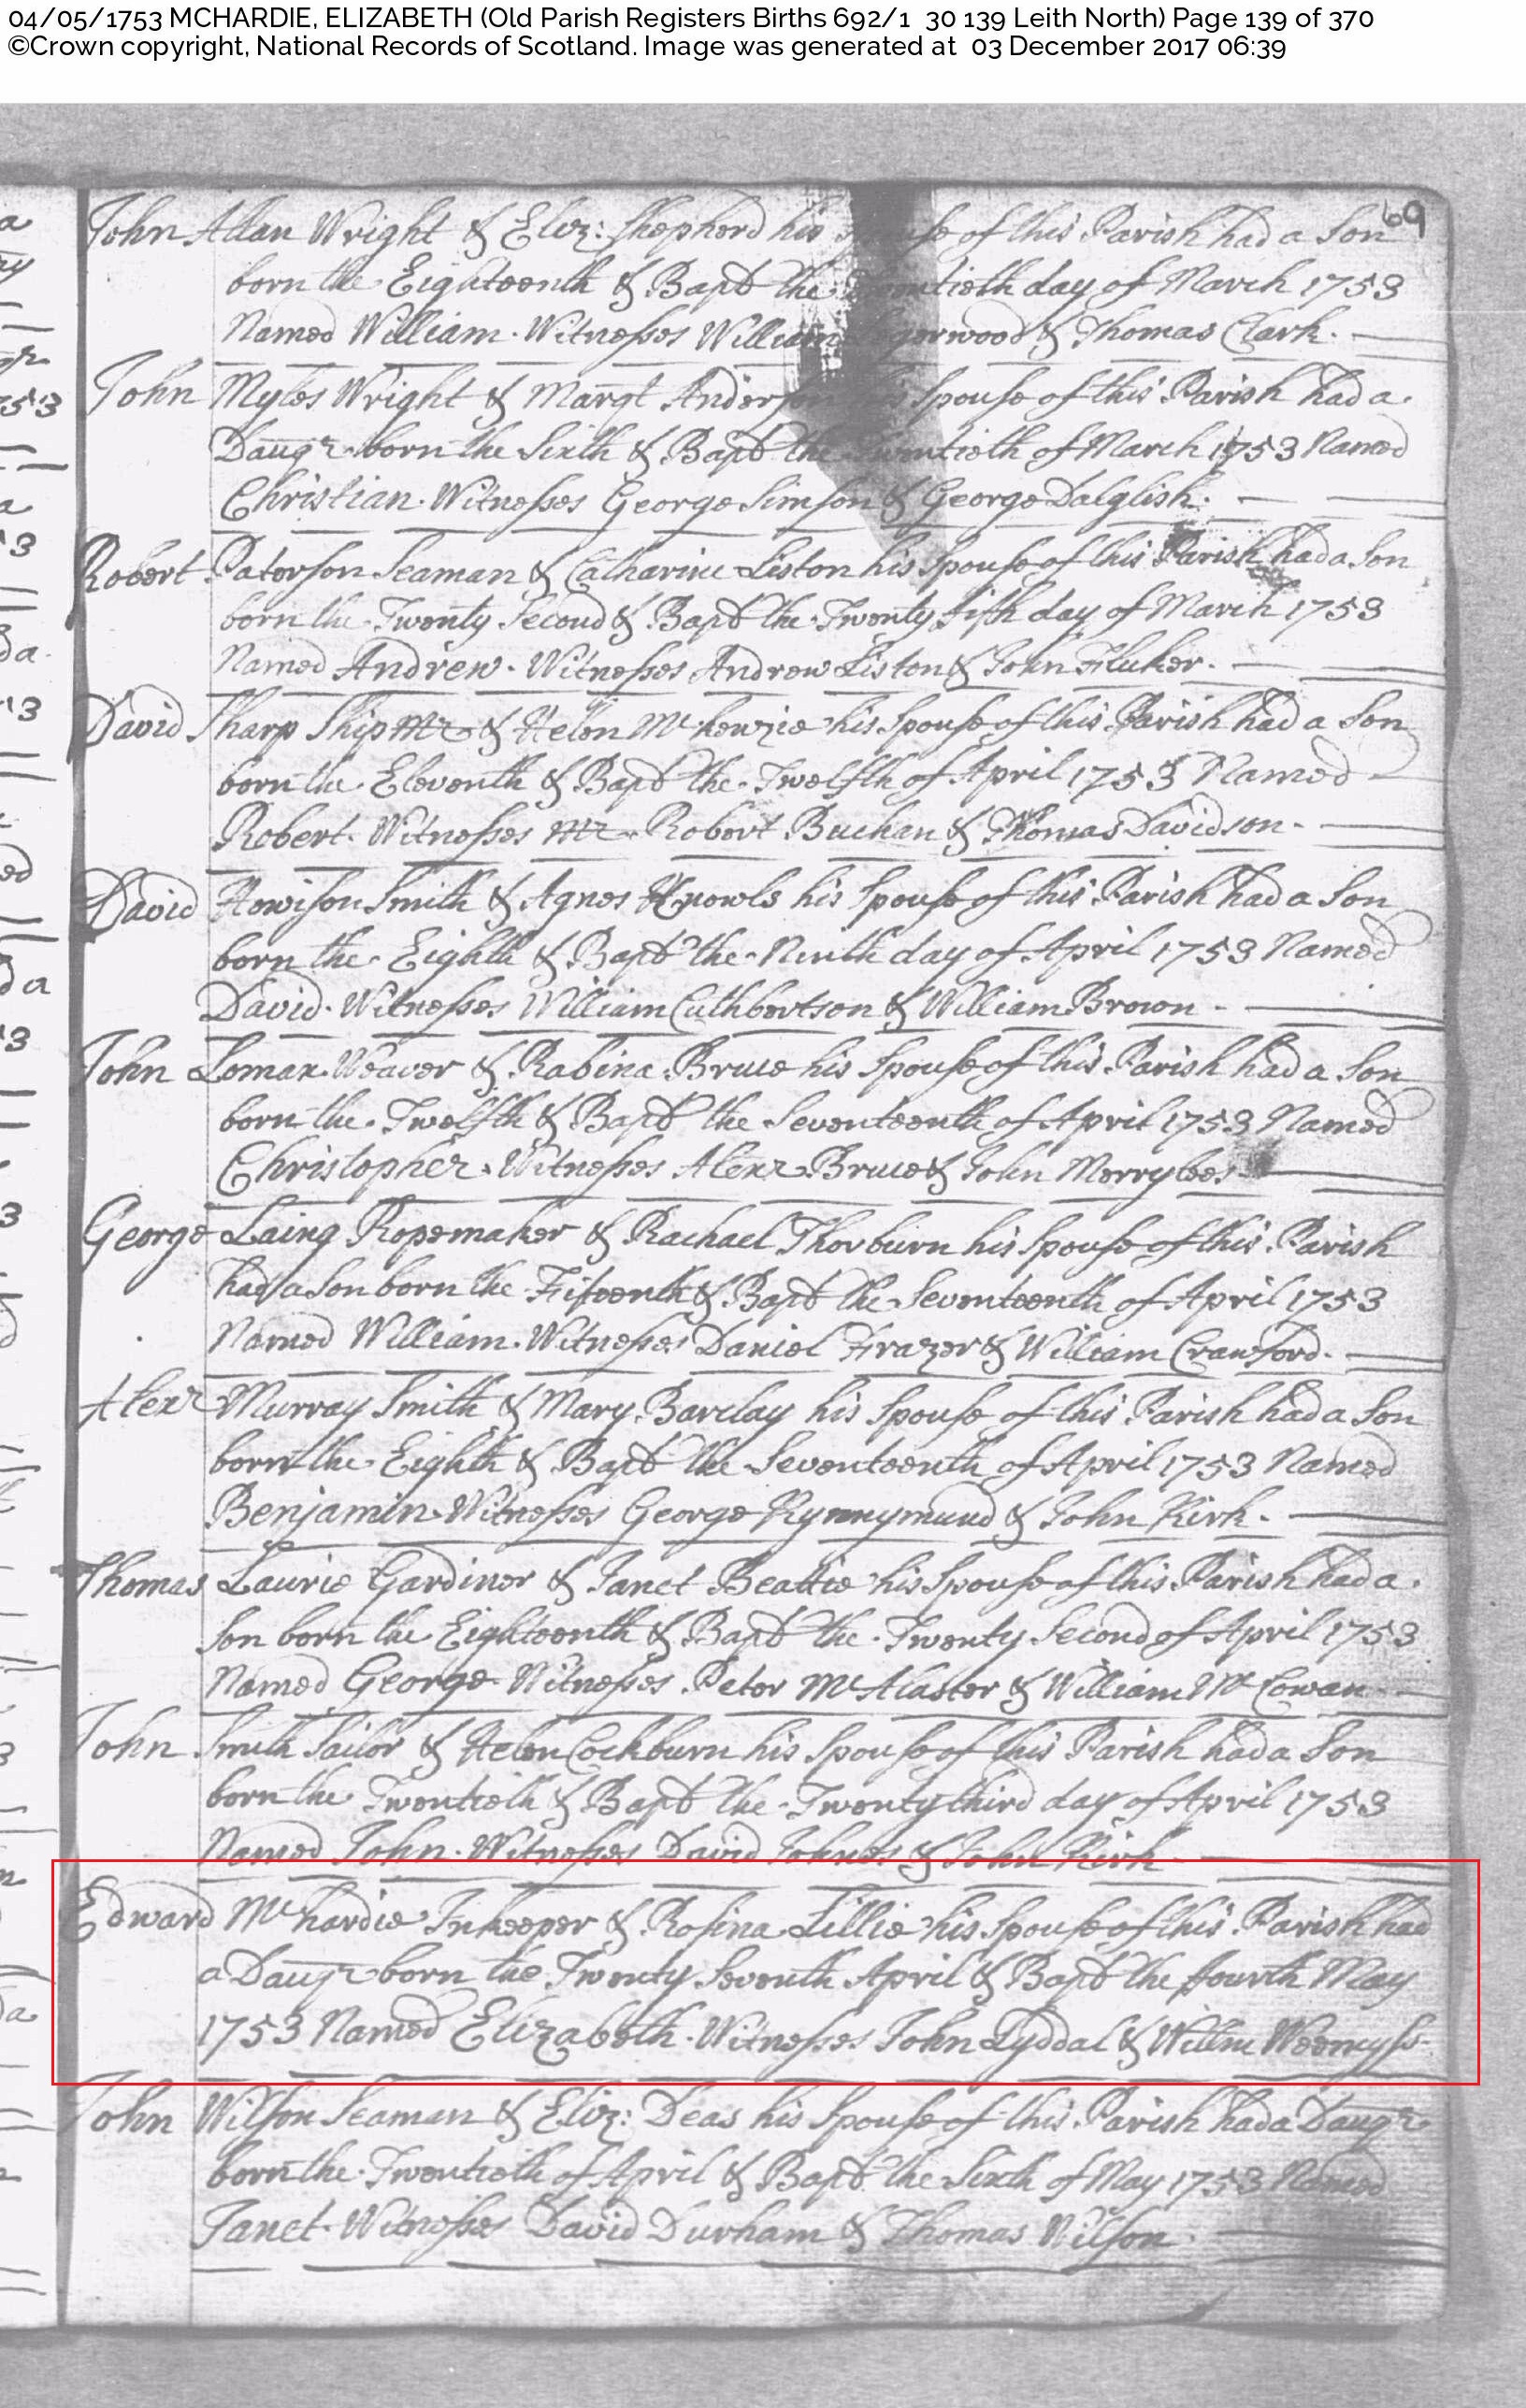 04/05/1753 MCHARDIE, ELIZABETH (Old Parish Registers Births 692/1 30 139 Leith North) Page 139 of 370
©Crown copyright, National Records of Scotland. Image was generated at 03 December 2017 06:39
69
John Allan Wright & Eliz: Shepherd his of this Parish had a Son
born the Eighteenth & Bapd the day of March 1753
Named William. Witnesses William & Thomas Clark.
John Myles Wright & Margt Anderson his Spouse of this Parish had a
Daugr born the Sixth & Bapd the Twentieth of March 1753 Named
Christian. Witnesses George Simson & George Dalglish.
Robert Paterson Seaman & Catharine Liston his Spouse of this Parish had a Son
born the Twenty Second & Bapd the Twenty fifth day of March 1753
Named Andrew. Witnesses Andrew Liston & John Fluker.
David Sharp Ship Mr & Helen Mckenzie his Spouse of this Parish had a Son
born the Eleventh & Bapd the Twelfth of April 1753 Named
Robert. Witnesses Mr Robert Buchan & Thomas Davidson.
David Howison Smith & Agnes Knowls his Spouse of this Parish had a Son
born the Eighth & Bapd the Ninth day of April 1753 Named
David. Witnesses William Cuthbertson & William Brown.
John Lomax Weaver & Rabina Bruce his Spouse of this Parish had a Son
born the Twelfth & Bapd the Seventeenth of April 1753 Named
Christopher. Witnesses Alexr Bruce & John Merrylees
George Laing Ropemaker & Rachael Thorburn his Spouse of this Parish
had a Son born the Fifteenth & Bapd the Seventeenth of April 1753
Named William. Witnesses Daniel Frazer & William Crawford.
Alexr Murray Smith & Mary Barclay his Spouse of this Parish had a Son
born the Eighth & Bapd the Seventeenth of April 1753 Named
Benjamin. Witnesses George Kynnymund & John Kirk.
Thomas Laurie Gardiner & Janet Beattie his Spouse of this Parish had a
Son born the Eighteenth & Bapd the Twenty Second of April 1753
Named George. Witnesses Peter McAlaster & William McCowan
John Smith Sailor & Helen Cockburn his Spouse of this Parish had a Son
born the Twentieth & Bapd the Twenty third day of April 1753
Named John. Witnesses David & John Kirk
Edward Mchardie Inkeeper & Rosina Lillie his Spouse of this Parish had
a Daugr born the Twenty Seventh April & Bapd the fourth May
1753 Named Elizabeth. Witnesses John Lyddal & Willm Weemyss
John Wilson Seaman & Eliz: Deas his Spouse of this Parish had a Daugr
born the Twentieth of April & Bapd the Sixth of May 1753 Named
Janet. Witnesses David Durham & Thomas Wilson